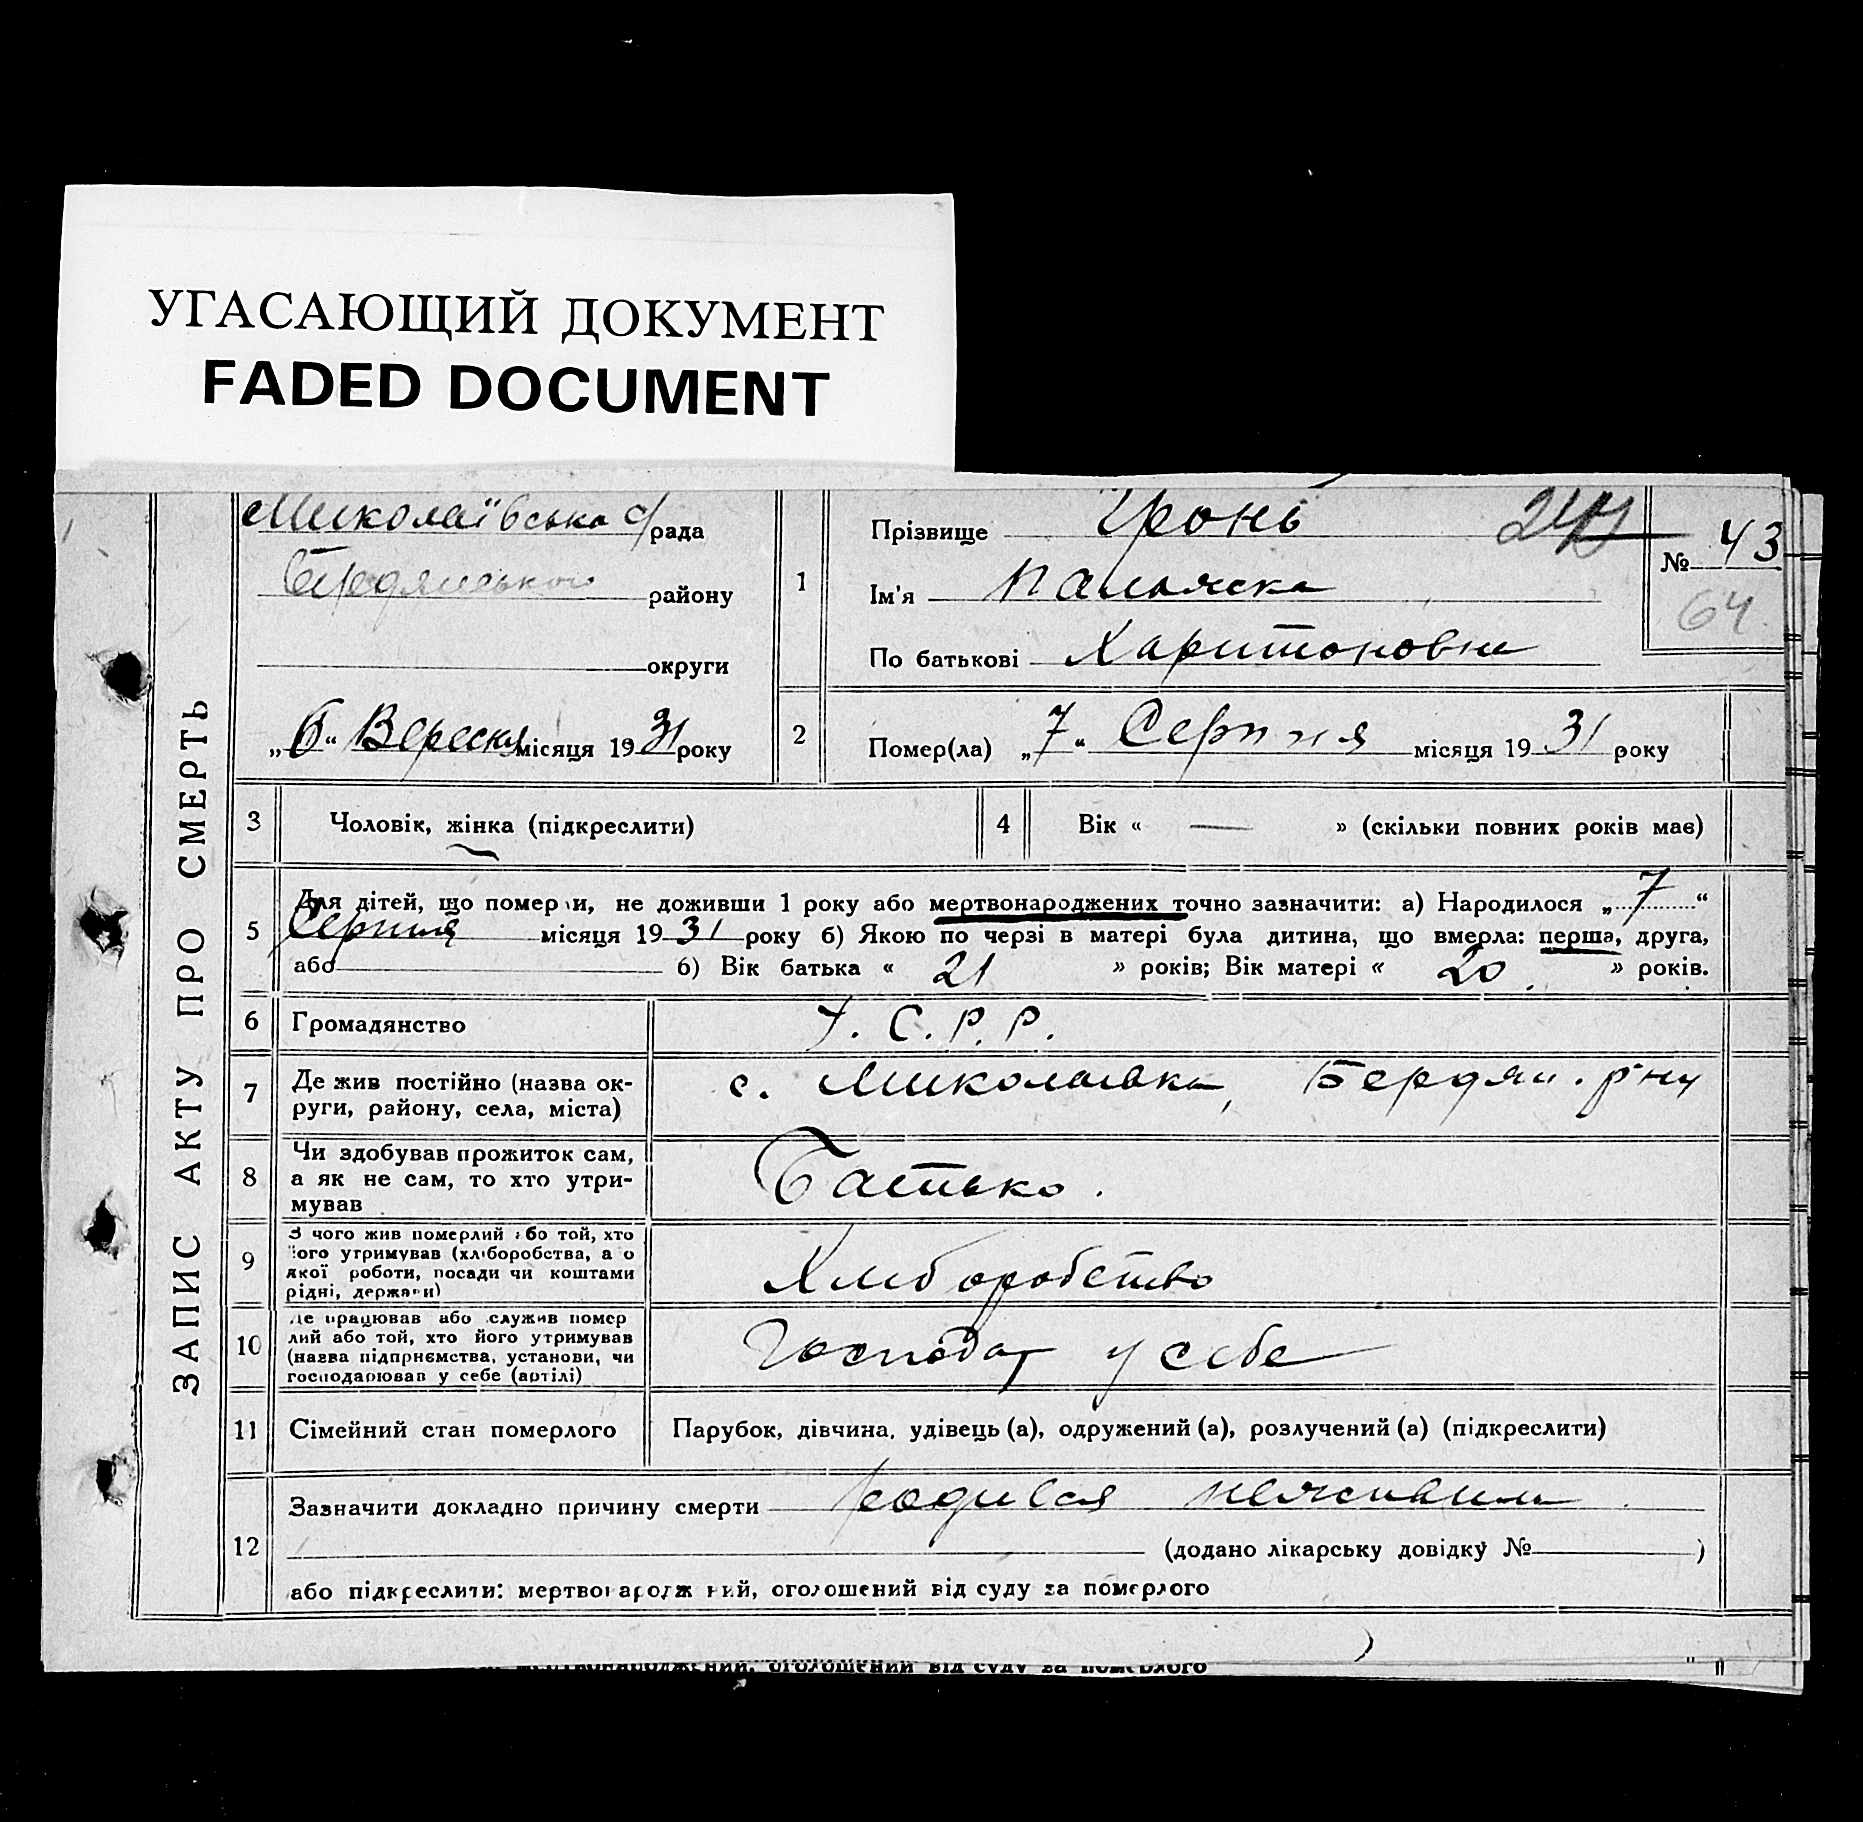 УГАСАЮЩИЙ ДОКУМЕНТ
FADED DOCUMENT
ЗАПИС АКТУ ПРО СМЕРТЬ
Миколаївська с/рада
Бердянського району
округи
„6“ Вересня місяця 1931 року
1
Прізвище Гронь
Ім'я
По батькові Харитоновна
№ 43
64
2
Помер(ла) „7“ Серпня місяця 1931 року
3 Чоловік, жінка (підкреслити)
4 Вік « — » (скільки повних років має)
5 Для дітей, що померли, не доживши 1 року або мертвонароджених точно зазначити: а) Народилося „7“
Серпня місяця 1931 року б) Якою по черзі в матері була дитина, що вмерла: перша, друга,
або б) Вік батька « 21 » років; Вік матері « 20 » років.
6 Громадянство У. С. Р. Р.
7 Де жив постійно (назва ок-
руги, району, села, міста)
с. Миколаївка, Бердян. р-ну
8 Чи здобував прожиток сам,
а як не сам, то хто утри-
мував
Батько.
9 З чого жив померлий або той, хто
його утримував (хліборобства, а о
якої роботи, посади чи коштами
рідні, держави)
Хліборобство
10 Де працював або служив помер
лий або той, хто його утримував
(назва підприємства, установи, чи
господарював у себе (артілі)
Господар у себе
11 Сімейний стан померлого
Парубок, дівчина, удівець (а), одружений (а), розлучений (а) (підкреслити)
12 Зазначити докладно причину смерти родився неживим
(додано лікарську довідку № )
або підкреслити: мертвонароджений, оголошений від суду за померлого
мертвонароджений, оголошений від суду за померлого